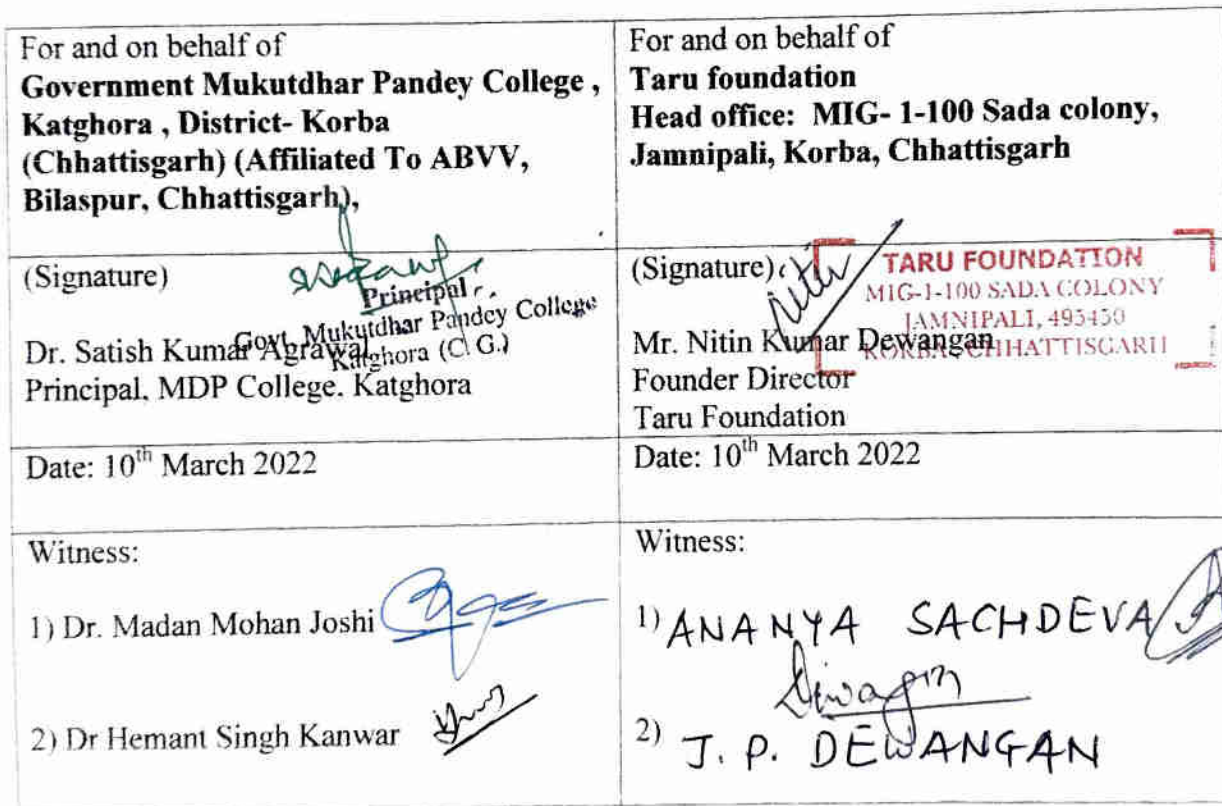 For and on behalf of
Government Mukutdhar Pandey College ,
Katghora , District- Korba
(Chhattisgarh) (Affiliated To ABVV,
Bilaspur, Chhattisgarh),
For and on behalf of
Taru foundation
Head office: MIG- 1-100 Sada colony,
Jamnipali, Korba, Chhattisgarh
(Signature)
Principal
Govt. Mukutdhar Pandey College
Katghora (C.G.)
Dr. Satish Kumar Agrawal
Principal, MDP College. Katghora
(Signature)
Nitin
TARU FOUNDATION
MIG-1-100 SADA COLONY
JAMNIPALI, 495450
KORBA, CHHATTISGARH
Mr. Nitin Kumar Dewangan
Founder Director
Taru Foundation
Date: 10th March 2022
Date: 10th March 2022
Witness:
1) Dr. Madan Mohan Joshi
2) Dr Hemant Singh Kanwar
Witness:
1) ANANYA SACHDEVA
2) J. P. DEWANGAN